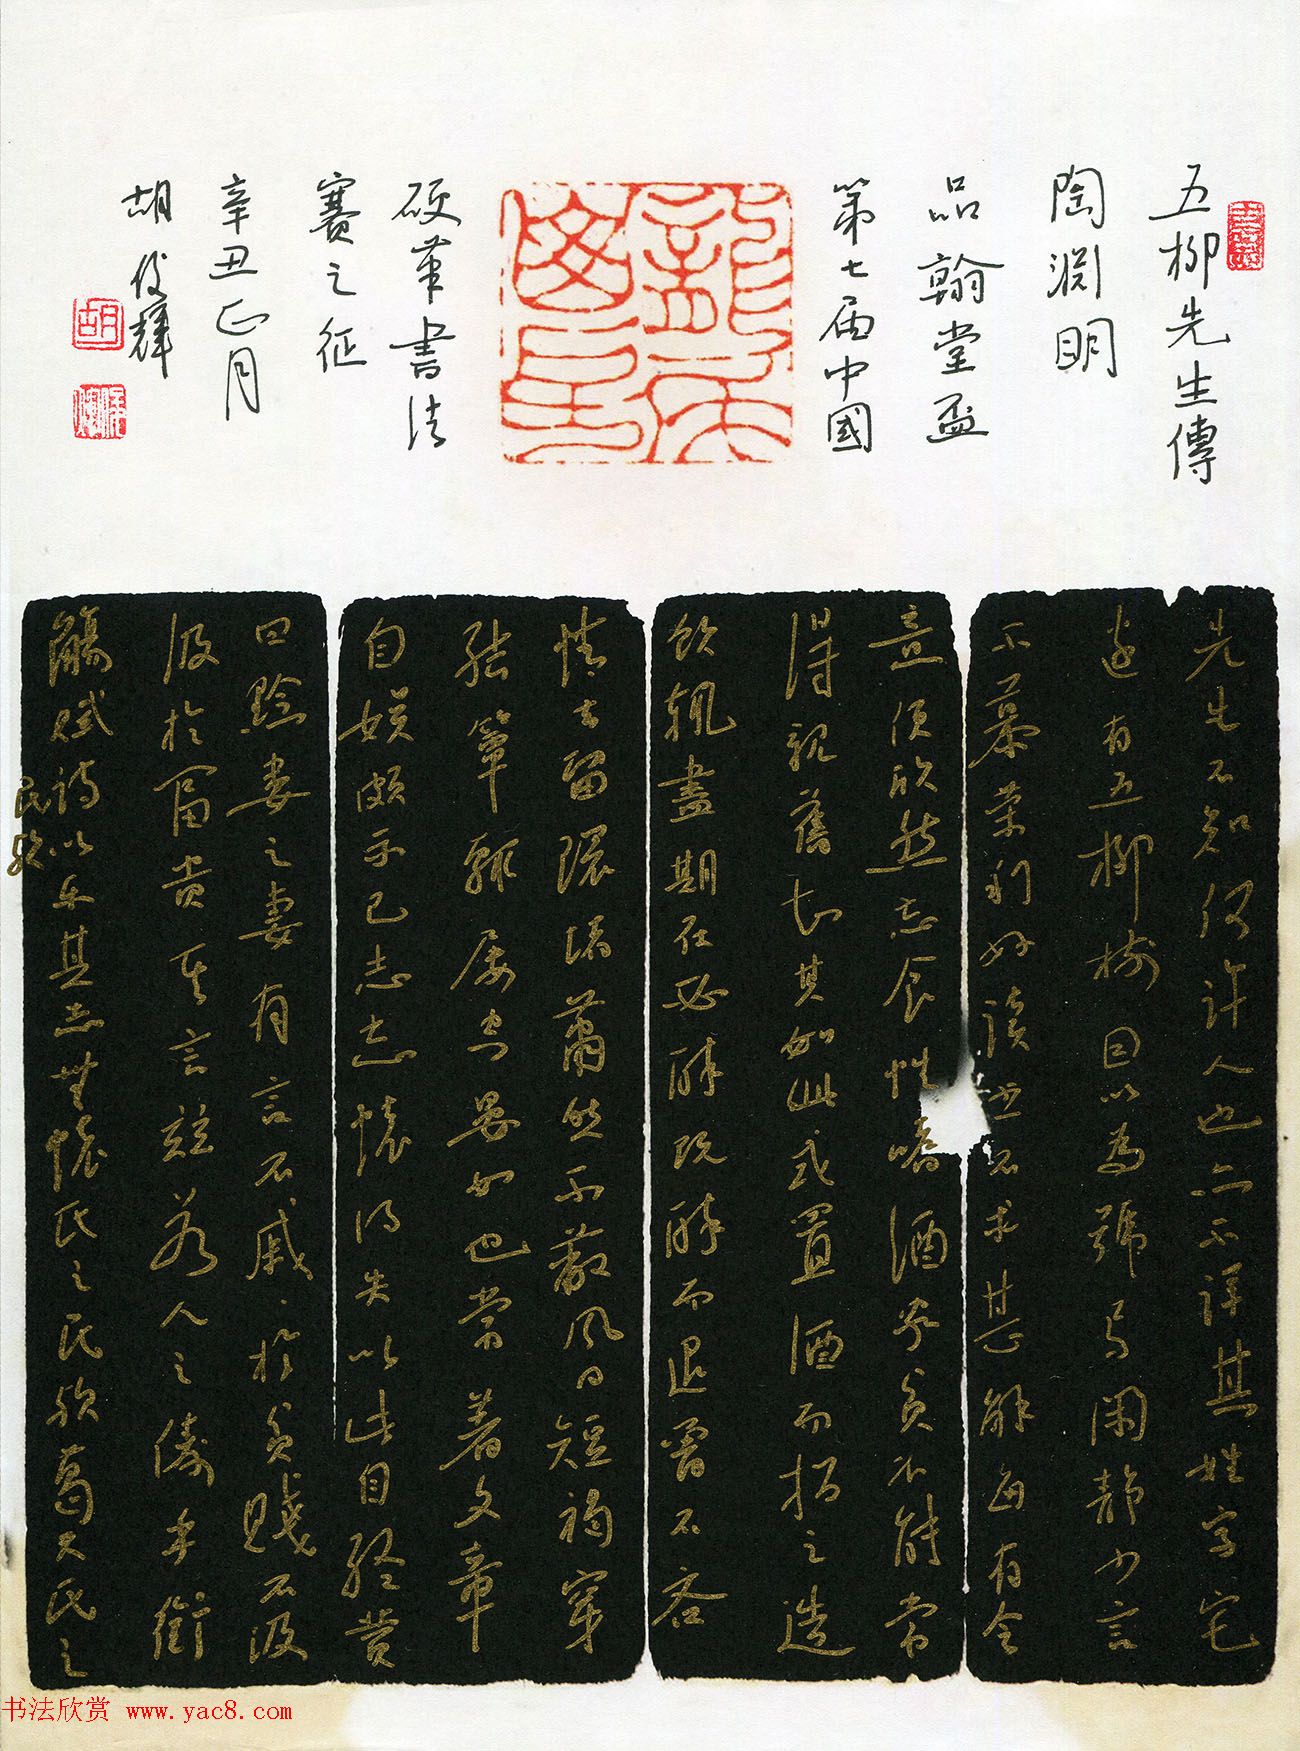 五柳先生傳
陶淵明
品翰堂盃
第七届中國
硬筆書法
賽之征
辛丑正月
胡俊輝
胡
先生不知何許人也亦不詳其姓字宅
邊有五柳樹因以為號焉閑靜少言
不慕榮利好讀書不求甚解每有会
意便欣然忘食性嗜酒家貧不能常
得親舊知其如此或置酒而招之造
飲輒盡期在必醉既醉而退曾不吝
情去留環堵蕭然不蔽風日短褐穿
結簞瓢屢空晏如也常著文章
自娛頗示己志忘懷得失以此自終贊
曰黔婁之妻有言不戚戚於貧賤不汲
汲於富貴其言茲若人之儔乎銜
觴賦詩以樂其志無懷氏之民歟葛天氏之
民歟
书法欣赏 www.yac8.com